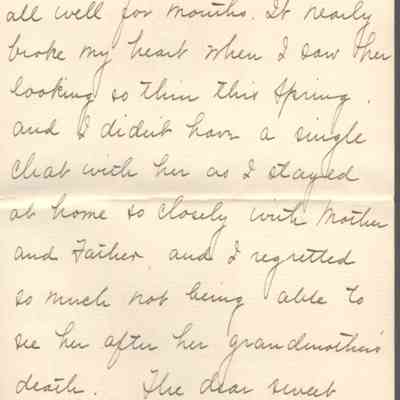 all well for months. It nearly
broke my heart when I saw her
looking so thin this Spring.
and I didn't have a single
chat with her as I stayed
at home so closely with Mother
and Father and I regretted
so much not being able to
see her after her grandmother's
death. The dear sweet